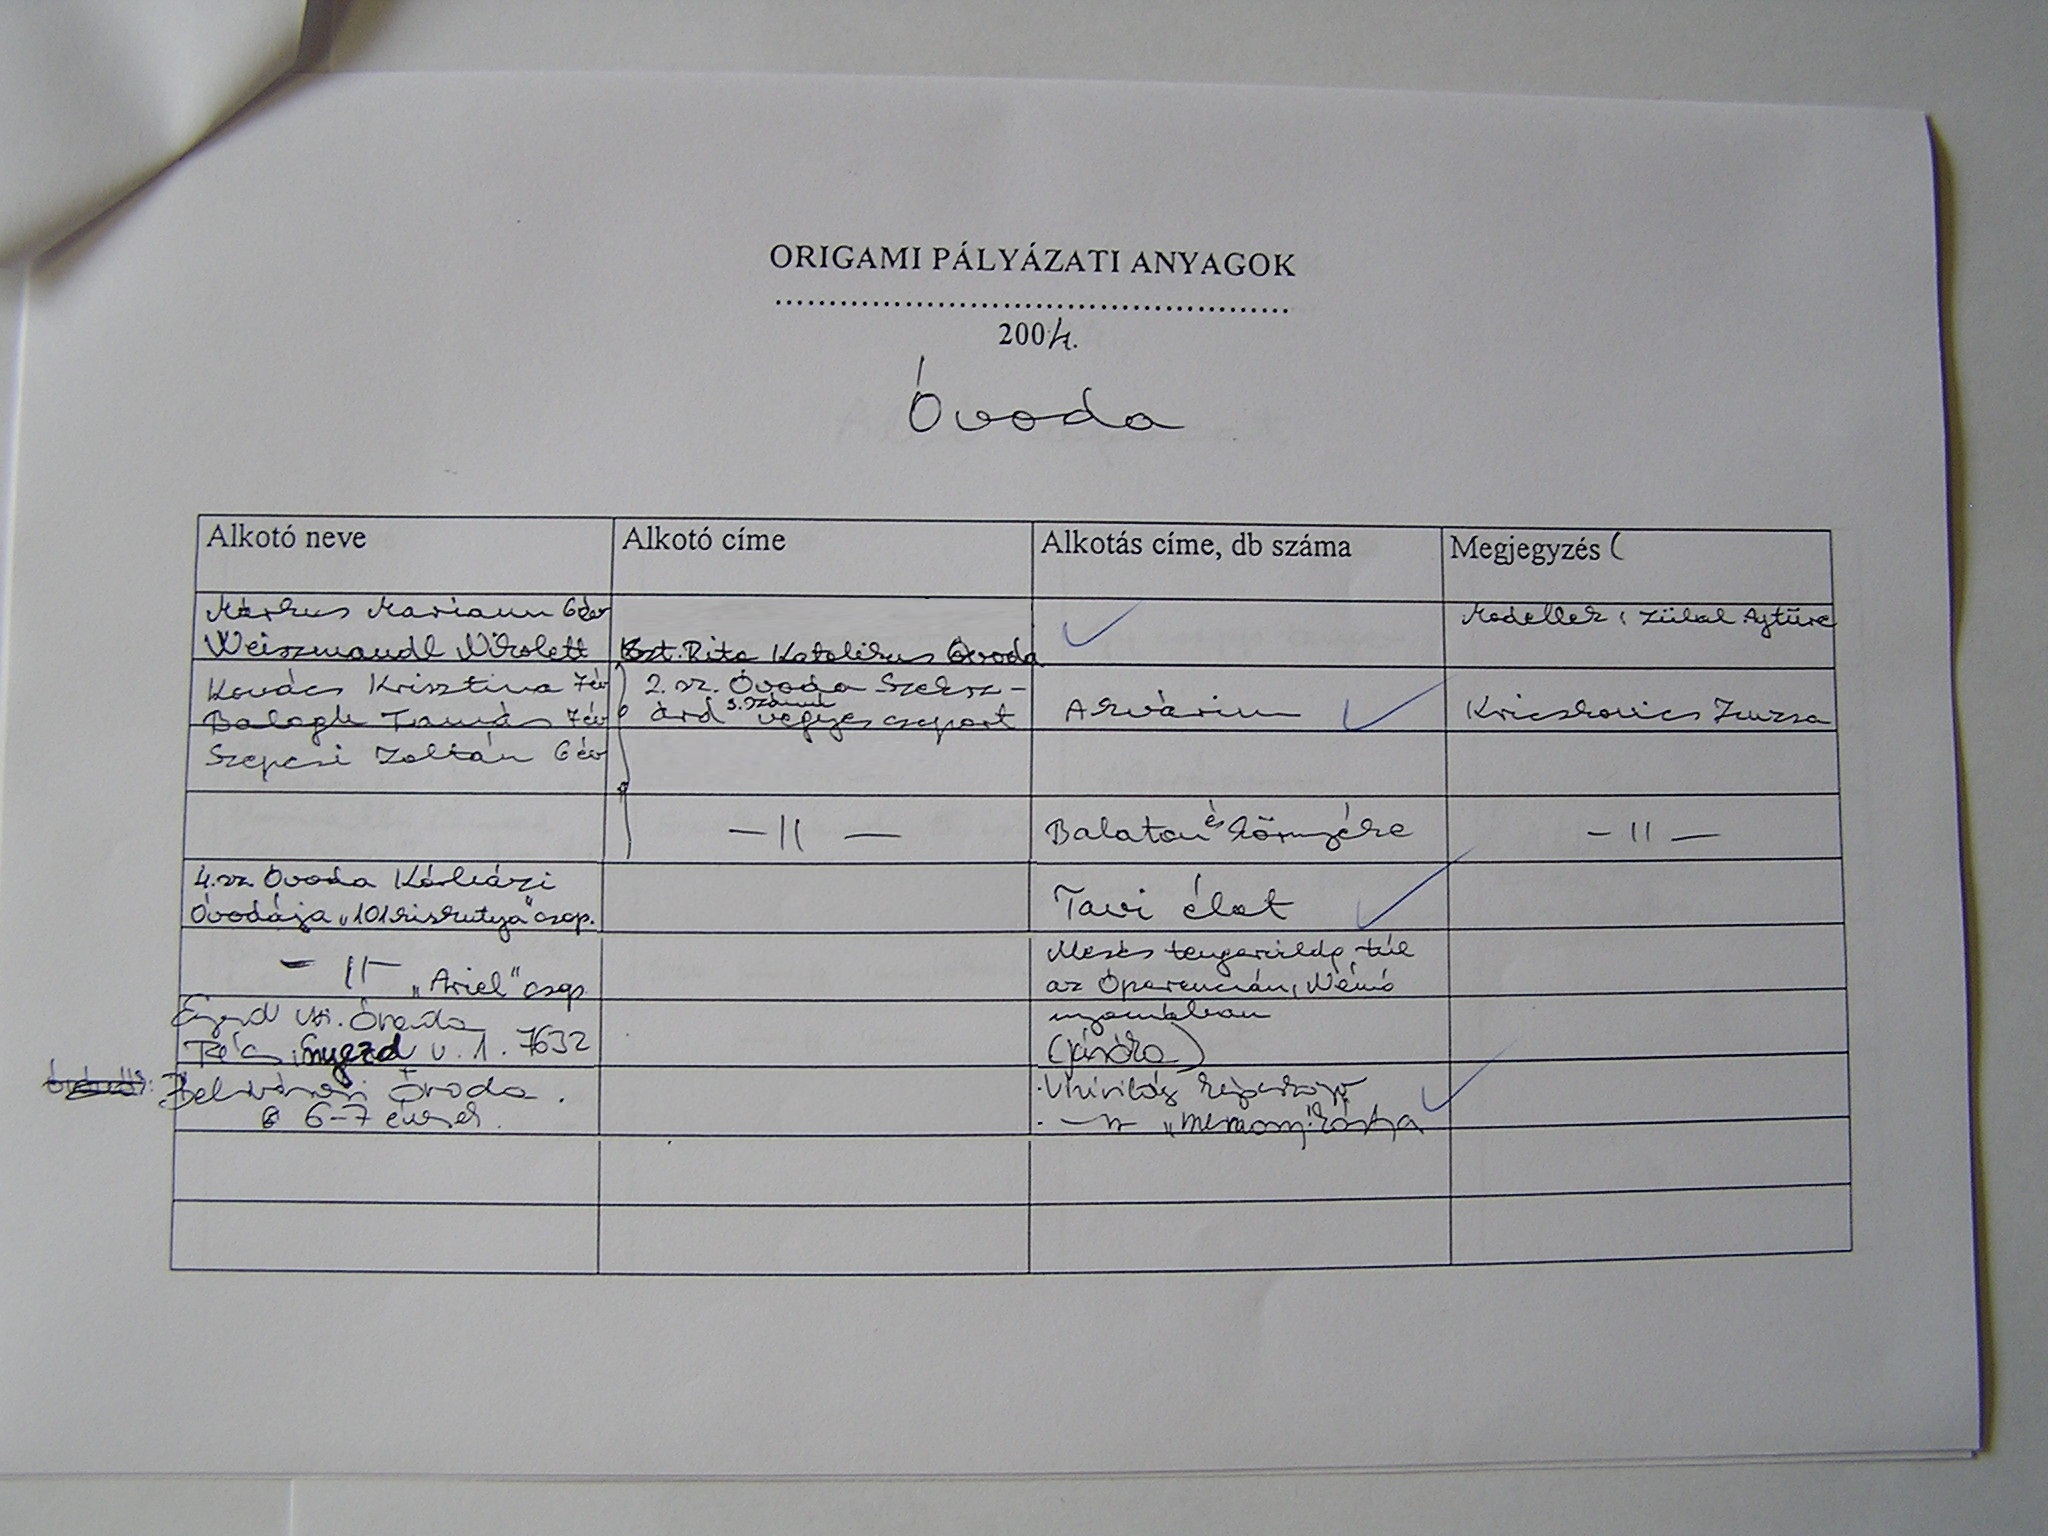 ORIGAMI PÁLYÁZATI ANYAGOK
..................................................
2004.
Óvoda
Alkotó neve Alkotó címe Alkotás címe, db száma Megjegyzés (
Márkus Mariann 6 év
Weiszmandl Nikolett Szt. Rita Katolikus Óvoda
Modellek: Zülal Aytüre
Kovács Krisztina 7 év
Balogh Tamás 7 év
2. sz. Óvoda Szeksz-
árd 3. számú vegyes csoport
Akvárium
Kricskovics Zsuzsa
Szepesi Zoltán 6 év
— 11 — Balaton és környéke — 11 —
4. sz. Óvoda Kórházi
Óvodája „101 kiskutya" csop.
Tavi élet
— 11 — „Ariel" csop.
Mesés túl
az Óperencián, Némó
nyomában
Óvoda
Pécs, Enyezd u. 1. 7632
Belvárosi Óvoda.
6-7 évesek.
Vízivilág